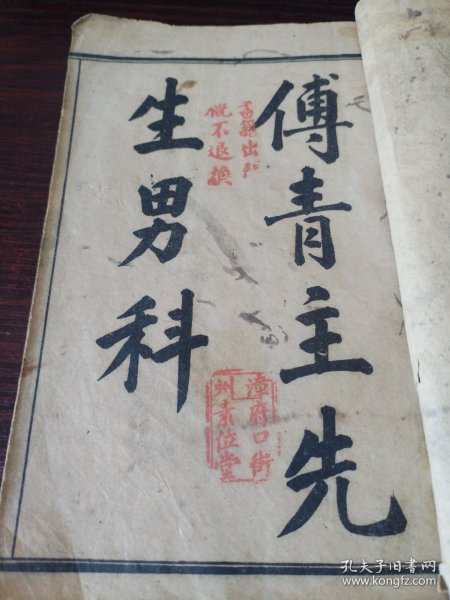 傅青主先
生男科
書籍出門
概不退換
漳府口街
州素位堂
孔夫子旧书网
www.kongfz.com